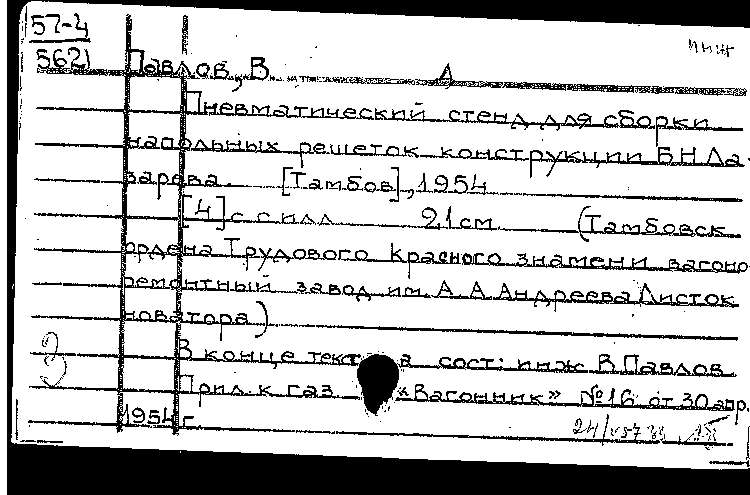 57-4
5621
инж
Павлов, В.
Пневматический стенд для сборки
напольных решеток конструкции Б Н Ла-
зарева. [Тамбов], 1954
[4] с с илл 21 см (Тамбовск
ордена Трудового Красного знамени вагоно
ремонтный завод им. А. А Андреева Листок
новатора)
В конце текста сост: инж В Павлов
Прил. к газ «Вагонник» № 16 от 30 апр.
1954 г.